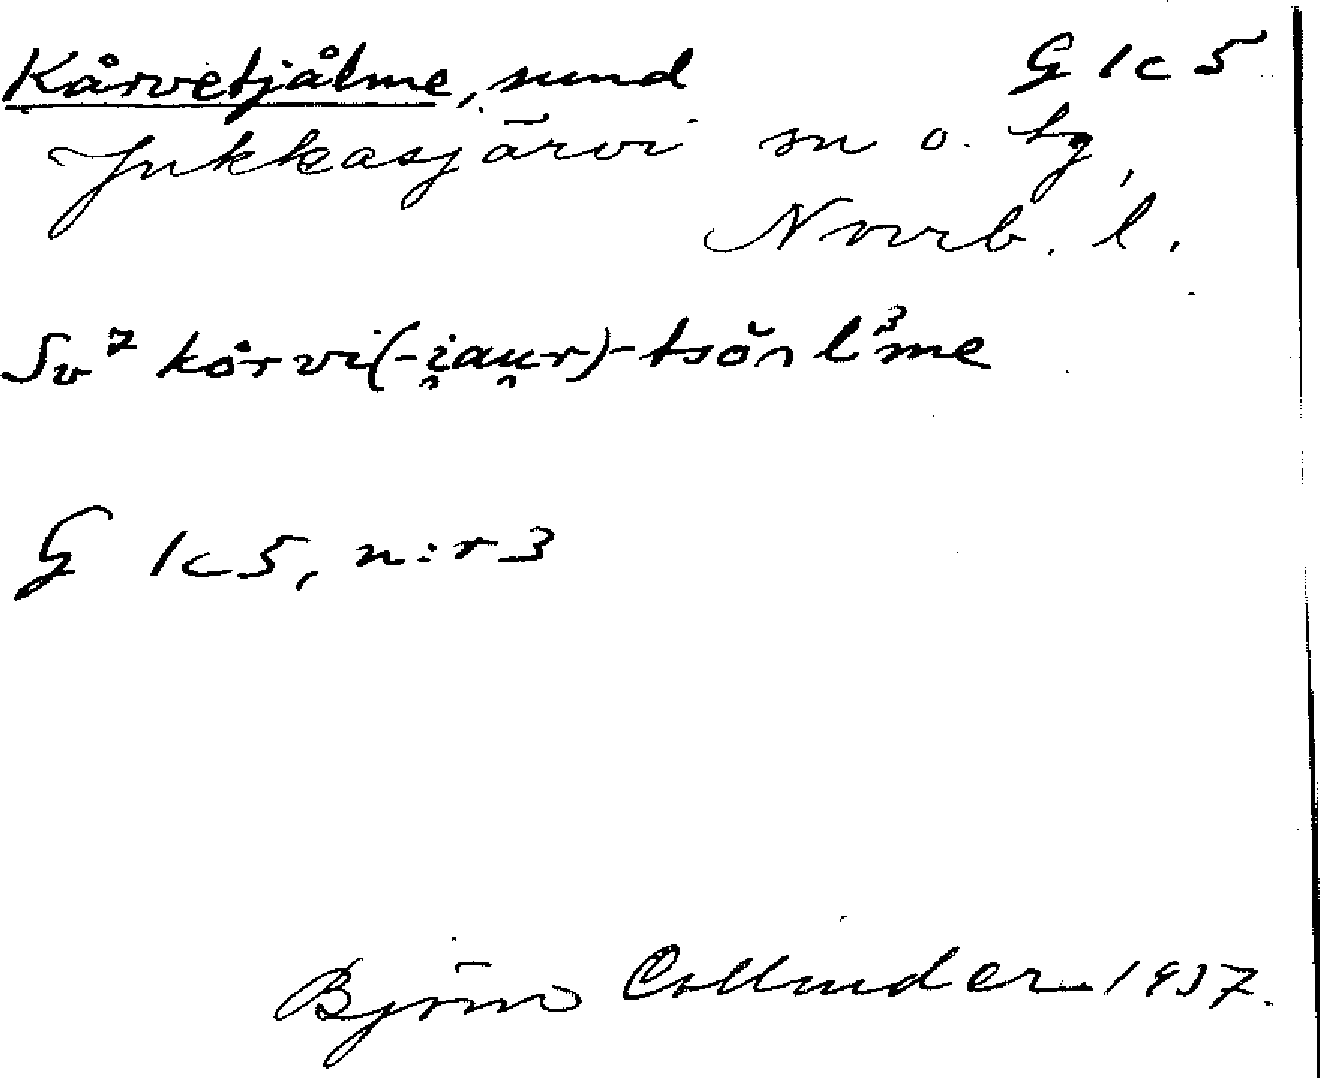 Kårvetjålme, sund G 1c 5
Jukkasjärvi sn o. tg,
Norrb. l.
Sv⁷ kårvi(-i̯au̯r)-
G 1c5, n:r 3
Björn Collinder 1937.